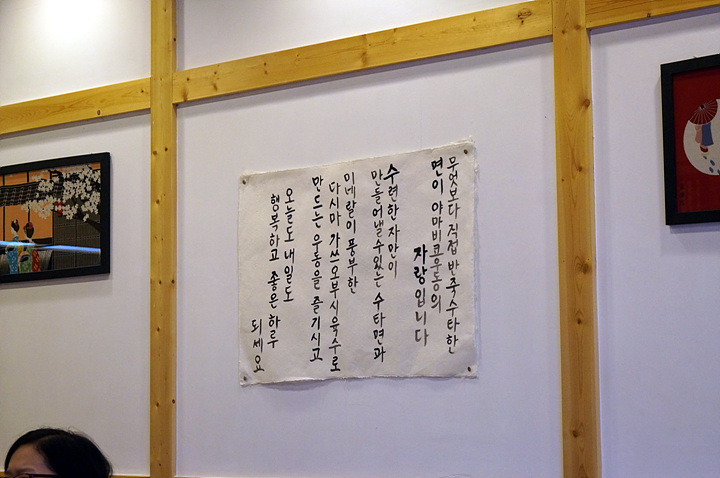 무엇보다 직접 반죽 수타한
면이 야마비코우동의
자랑입니다
수련한 자만이
만들어낼 수 있는 수타면과
미네랄이 풍부한
다시마 가쓰오부시 육수로
만드는 우동을 즐기시고
오늘도 내일도
행복하고 좋은 하루
되세요